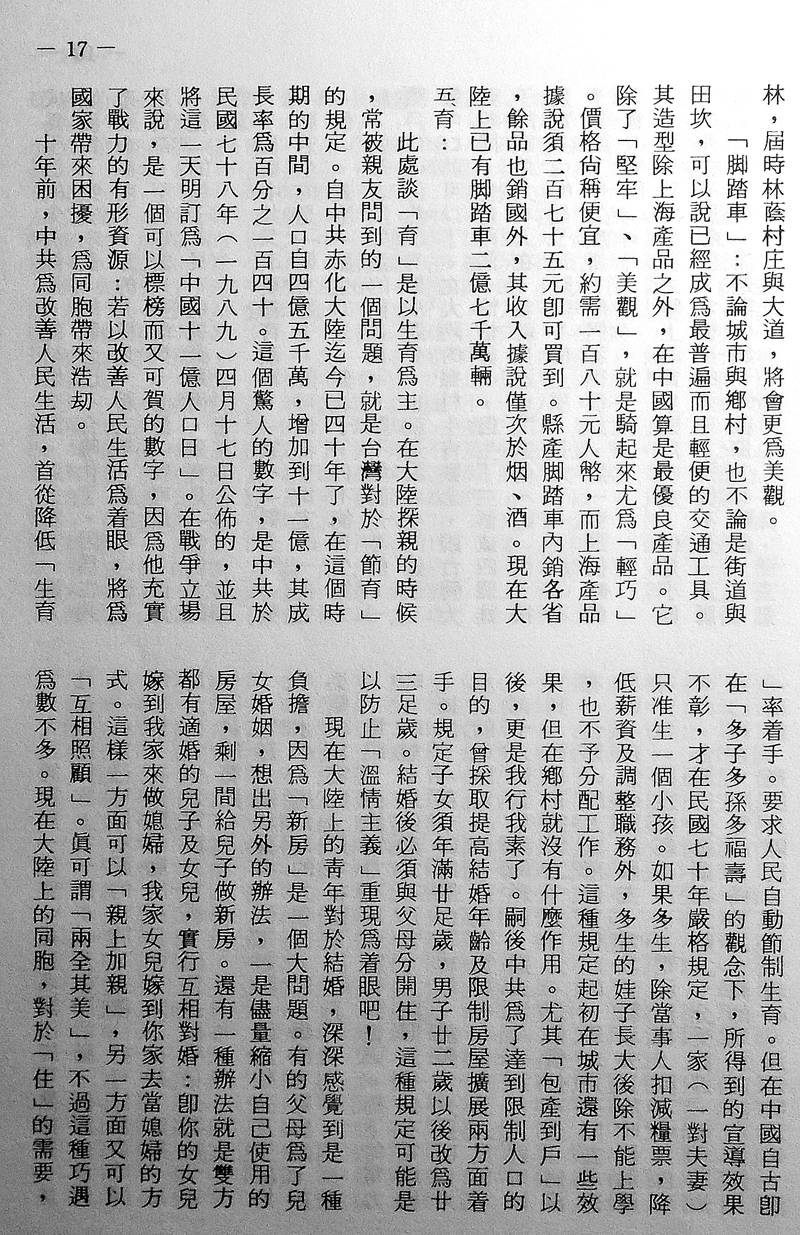 — 17 —
林，屆時林蔭村庄與大道，將會更爲美觀。
「脚踏車」：不論城市與鄉村，也不論是街道與
田坎，可以說已經成爲最普遍而且輕便的交通工具。
其造型除上海產品之外，在中國算是最優良產品。它
除了「堅牢」、「美觀」，就是騎起來尤爲「輕巧」
。價格尙稱便宜，約需一百八十元人幣，而上海產品
據說須二百七十五元卽可買到。縣產脚踏車內銷各省
，餘品也銷國外，其收入據說僅次於烟、酒。現在大
陸上已有脚踏車二億七千萬輛。
五、育：
此處談「育」是以生育爲主。在大陸探親的時候
，常被親友問到的一個問題，就是台灣對於「節育」
的規定。自中共赤化大陸迄今已四十年了，在這個時
期的中間，人口自四億五千萬，增加到十一億，其成
長率爲百分之一百四十。這個驚人的數字，是中共於
民國七十八年（一九八九）四月十七日公佈的，並且
將這一天明訂爲「中國十一億人口日」。在戰爭立場
來說，是一個可以標榜而又可賀的數字，因爲他充實
了戰力的有形資源：若以改善人民生活爲着眼，將爲
國家帶來困擾，爲同胞帶來浩刼。
十年前，中共爲改善人民生活，首從降低「生育
」率着手。要求人民自動節制生育。但在中國自古卽
在「多子多孫多福壽」的觀念下，所得到的宣導效果
不彰，才在民國七十年嚴格規定，一家（一對夫妻）
只准生一個小孩。如果多生，除當事人扣減糧票，降
低薪資及調整職務外，多生的娃子長大後除不能上學
，也不予分配工作。這種規定起初在城市還有一些效
果，但在鄉村就沒有什麼作用。尤其「包產到戶」以
後，更是我行我素了。嗣後中共爲了達到限制人口的
目的，曾採取提高結婚年齡及限制房屋擴展兩方面着
手。規定子女須年滿廿足歲，男子廿二歲以後改爲廿
三足歲。結婚後必須與父母分開住，這種規定可能是
以防止「溫情主義」重現爲着眼吧！
現在大陸上的靑年對於結婚，深深感覺到是一種
負擔，因爲「新房」是一個大問題。有的父母爲了兒
女婚姻，想出另外的辦法，一是儘量縮小自己使用的
房屋，剩一間給兒子做新房。還有一種辦法就是雙方
都有適婚的兒子及女兒，實行互相對婚：卽你的女兒
嫁到我家來做媳婦，我家女兒嫁到你家去當媳婦的方
式。這樣一方面可以「親上加親」，另一方面又可以
「互相照顧」。眞可謂「兩全其美」，不過這種巧遇
爲數不多。現在大陸上的同胞，對於「住」的需要，